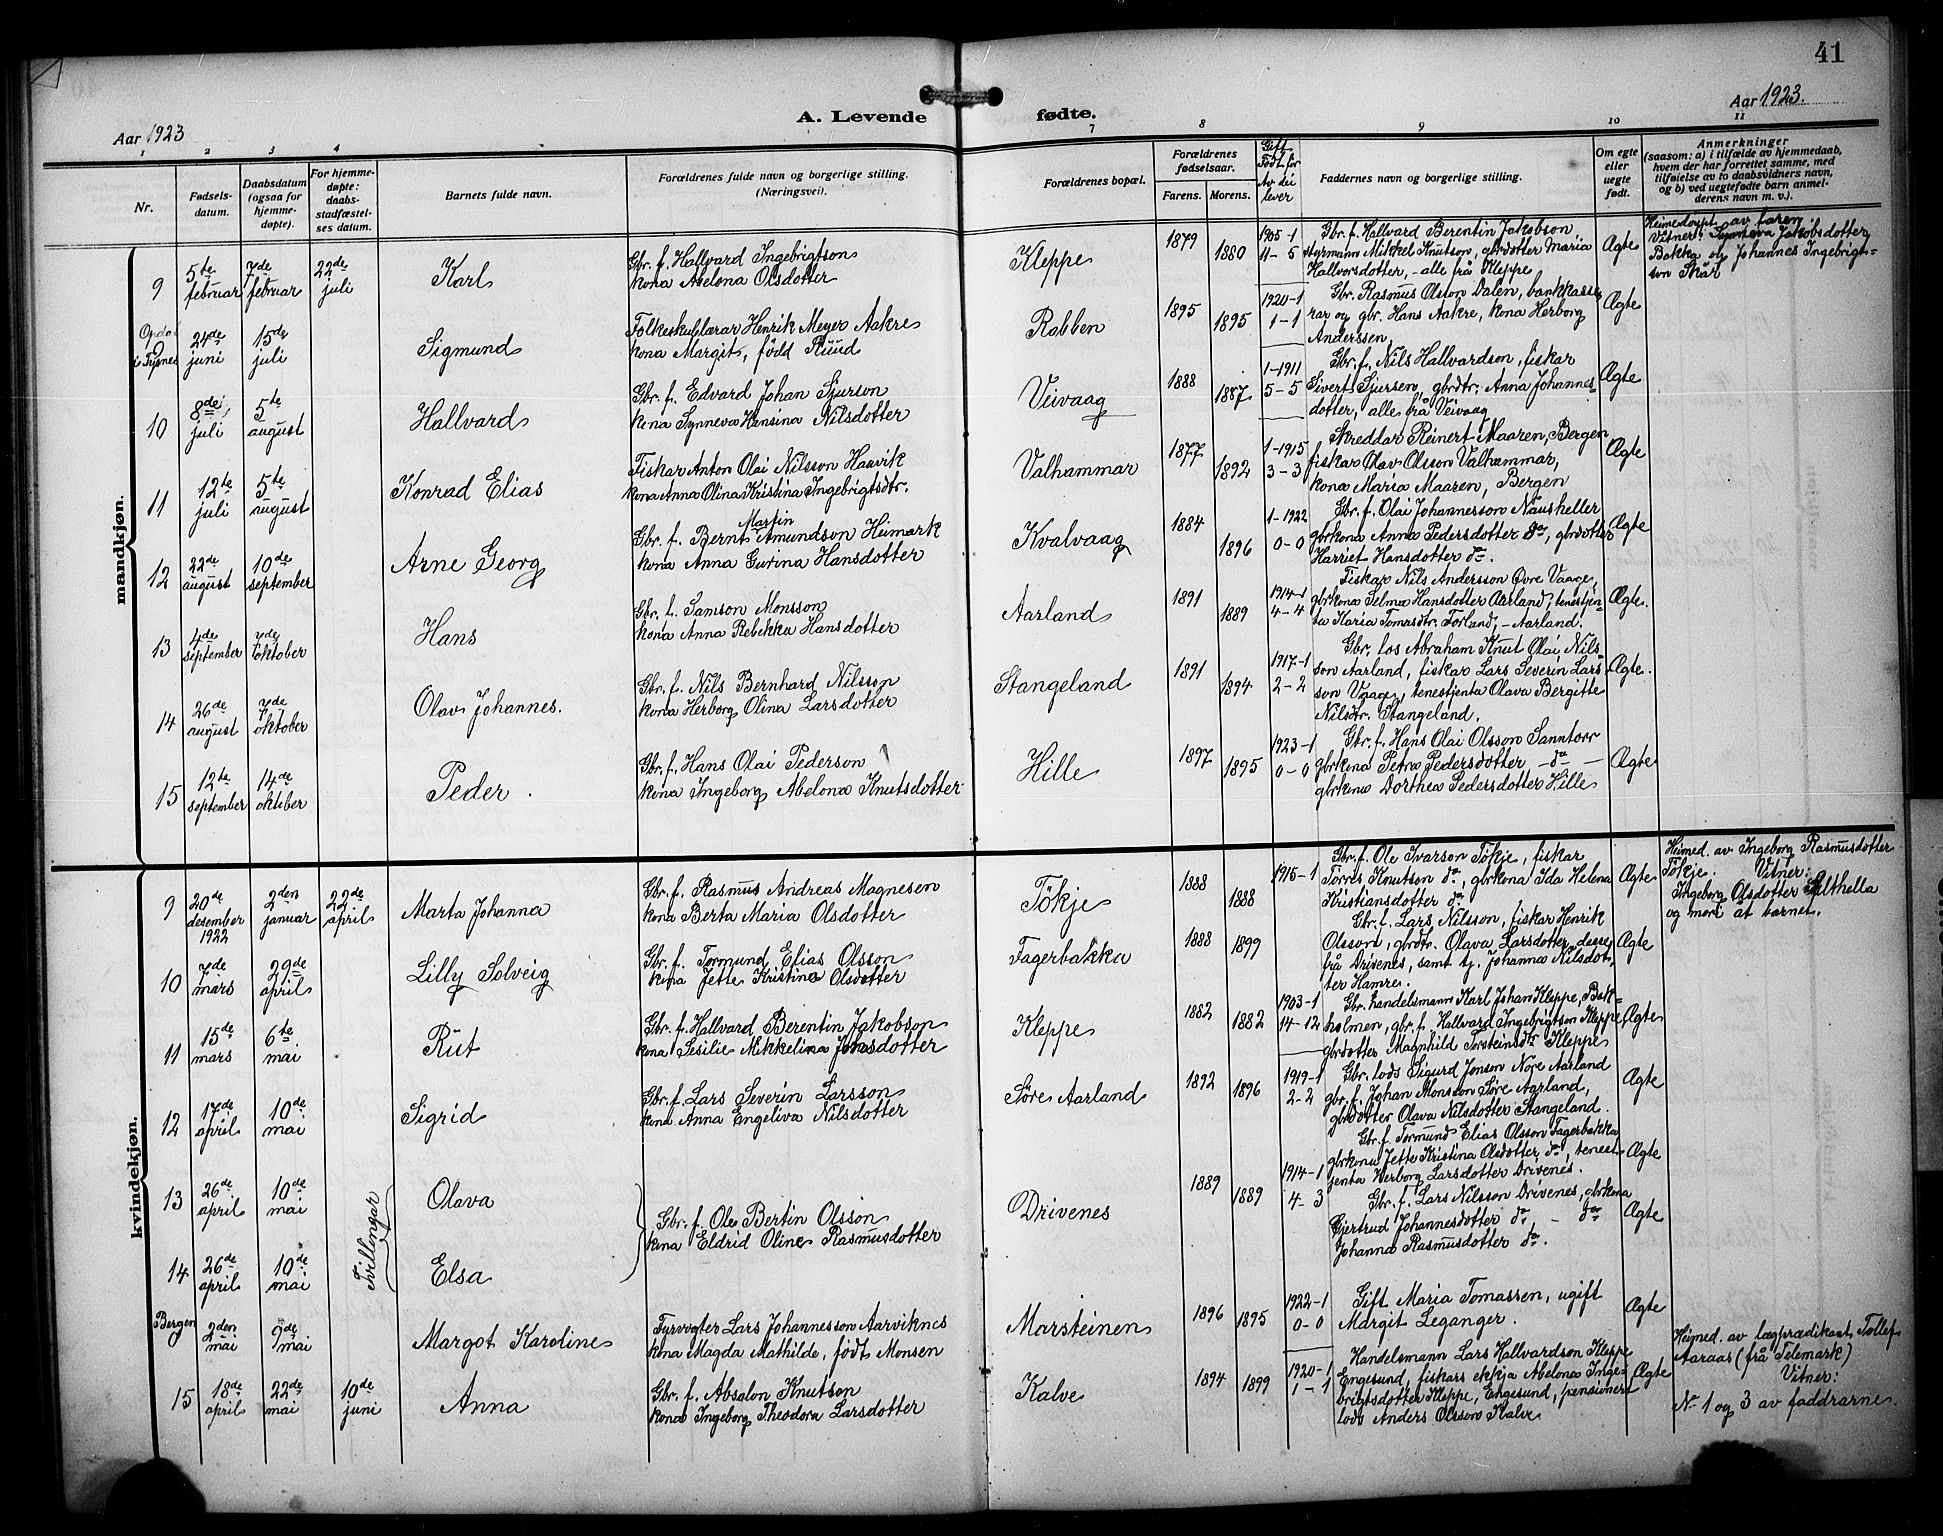 41
Aar 1923
A. Levende fødte.
Aar 1923.
1 2 3 4 7 8 9 10 11
Nr.
Fødsels-
datum.
Daabsdatum
(ogsaa for
hjemme-
døpte).
For hjemme-
døpte:
daabs-
stadfæstel-
ses datum.
Barnets fulde navn.
Forældrenes fulde navn og borgerlige stilling.
(Næringsvei).
Forældrenes bopæl.
Forældrenes
fødselsaar.
Farens. Morens.
Gift
Født før
Av dei
lever
Faddernes navn og borgerlige stilling.
Om egte
eller
uegte
født.
Anmerkninger
(saasom: a) i tilfælde av hjemmedaab,
hvem der har forrettet samme, med
tilføielse av to daabsvidners navn,
og b) ved uegtefødte barn anmel-
derens navn m. v.).
mandkjøn.
9
5te februar
7de februar
22de juli
Karl
Gbr. f. Hallvard Ingebrigtson
kona Abelona Olsdotter
Kleppe
1879 1880
1905-1
11-5
Gbr. f. Hallvard Berentin Jakobson,
styrmann Mikkel Knutson, gbrdotter Maria
Hallvorsdotter, - alle frå Kleppe
Ægte
Heimedøypt av faren
Vitner: Synneva Jakobsdotter
Bakka og Johannes Ingebrigt-
son Skår
9
i Tysnes
24de juni
15de juli
Sigmund
Folkeskulelærar Henrik Meyer Aakre
kona Margit, fødd Ruud
Rabben
1895 1895
1920-1
1-1
Gbr. Rasmus Olsson Dalen, bankkasse-
rar og gbr. Hans Aakre, kona Herborg
Anderssen,
Ægte
10
8de juli
5te august
Hallvard
Gbr. f. Edvard Johan Sjurson
kona Synneva Hansina Nilsdotter
Veivaag
1888 1887
1-1911
5-5
Gbr. f. Nils Hallvardson, fiskar
Sivert Sjursen, gbrdtr. Anna Johannes-
dotter, alle frå Veivaag
Ægte
11
12te juli
5te august
Konrad Elias
Fiskar Anton Olai Nilsson Haavik
kona Anna Olina Kristina Ingebrigtsdtr.
Valhammar
1877 1892
1-1915
3-3
Skreddar Reinert Maaren, Bergen
fiskar Olav Olsson Valhammar,
kona Maria Maaren, Bergen
Ægte
12
22de august
10de september
Arne Georg
Martin
Gbr. f. Bernt Amundson Heimark
kona Anna Gurina Hansdotter
Kvalvaag
1884 1896
1-1922
0-0
Gbr. f. Olai Johannesson Nausheller
gbrkona Anna Pedersdotter do, gbrdotter
Harriet Hansdotter do.
Ægte
13
4de september
7de oktober
Hans
Gbr. f. Samson Monsson
kona Anna Rebekka Hansdotter
Aarland
1891 1889
1914-1
4-4
Fiskar Nils Andersson Øvre Vaage,
gbrkona Selma Hansdotter Aarland, tenestjen-
ta Karia Tomasdtr. Forland, - Aarland.
Ægte.
14
26de august
7de oktober
Olav Johannes.
Gbr. f. Nils Bernhard Nilsson
kona Herborg Olina Larsdotter
Stangeland
1891 1894
1917-1
2-2
Gbr. los Abraham Knut Olai Nils-
son Aarland, fiskar Lars Severin Lars-
son Vaage, tenestjenta Olava Bergitte
Nilsdtr. Stangeland.
Ægte.
15
12te september
14de oktober
Peder.
Gbr. f. Hans Olai Pederson
kona Ingeborg Abelona Knutsdotter
Hille
1897 1895
1923-1
0-0
Gbr. f. Hans Olai Olsson Sanntorr
gbrkona Petra Pedersdotter - do -
gbrkona Dorthea Pedersdotter Hille
Ægte
kvindekjøn.
9
20de desember 1922
2den januar
22de april
Marta Johanna
Gbr. f. Rasmus Andreas Magnesen
kona Berta Maria Olsdotter
Tökje
1888 1888
1915-1
Gbr. f. Ole Ivarson Tökje, fiskar
Torres Knutson do, gbrkona Ida Helena
Kristiansdotter do
Ægte
Heimed. av Ingeborg Rasmusdotter
Tökje. Vitner:
Ingeborg Olsdotter Salthella
og mori åt barnet.
10
7de mars
29de april
Lilly Solveig
Gbr. f. Tormund Elias Olsson
kona Jette Kristina Olsdotter
Fagerbakka
1888 1899
Gbr. f. Lars Nilsson, fiskar Henrik
Olsson, gbrdtr. Olava Larsdotter, desse
frå Drivenes, samt tj. Johanna Nilsdot-
ter Hamre.
Ægte
11
15de mars
6te mai
Rut
Gbr. f. Hallvard Berentin Jakobson
kona Sesilie Mikkelina Jonsdotter
Kleppe
1882 1882
1903-1
14-12
Gbr. handelsmann Karl Johan Kleppe, Bak-
holmen, gbr. f. Hallvard Ingebrigtson Kleppe,
gbrdotter Magnhild Torsteinsdtr Kleppe
Ægte
12
17de april
10de mai
Sigrid
Gbr. f. Lars Severin Larsson
kona Anna Engeliva Nilsdotter
Søre Aarland
1892 1896
1919-1
2-2
Gbr. lods Sigurd Jonson Nore Aarland
gbr. f. Johan Monsson Søre Aarland,
gbrdotter Olava Nilsdotter Stangeland.
Ægte
13
26de april
10de mai
Tvillingar
Olava
Gbr. f. Ole Bertin Olsson
kona Eldrid Oline Rasmusdotter
Drivenes
1889 1889
1914-1
4-3
Gbr. f. Tormund Elias Olsson Fagerbakka
gbrkona Jette Kristina Olsdotter, do, tenest-
jenta Herborg Larsdotter Drivenes.
Ægte
14
26de april
10de mai
Elsa
Gbr. f. Lars Nilsson Drivenes, gbrkona
Gjertrud Johannesdotter do - do
Johanna Rasmusdotter do.
Ægte
Bergen
2den mai
9de mai
Margot Karoline
Fyrvogter Lars Johannesson Aarviknes
kona Magda Mathilde, født Monsen
Marsteinen
1896 1895
1922-1
0-0
Gift Maria Tomassen, ugift
Margit Leganger.
Ægte
15
18de april
22de mai
10de juni
Anna
Gbr. f. Absalon Knutson
kona Ingeborg Theodora Larsdotter
Kalve
1894 1899
1920-1
1-1
Handelsmann Lars Hallvardson Kleppe
Engesund, fiskars ekkja Abelona Inge-
brigtsdotter Kleppe, Engesund, pensionert
lods Anders Olsson Kalve
Ægte
Heimed. av lægprædikant Tollef
Aaraas (frå Telemark)
Vitner:
No 1 og 3 av faddrarne.